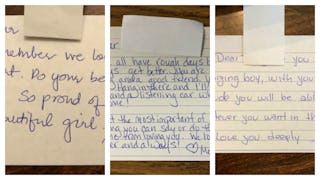 ur
member we lo
t. Do your be
So proud of
autiful girl
ar
all have rough days b
s get better. You are
and a good friend.
Hang in there and I'll
and a listening ear wh
me!
t the most important of
ng you can say or do th
me from loving you. We lo
er and always! ♡ Mo
Dear you
ging boy, with you
ob you will be abl
ever you want in th
love you deeply